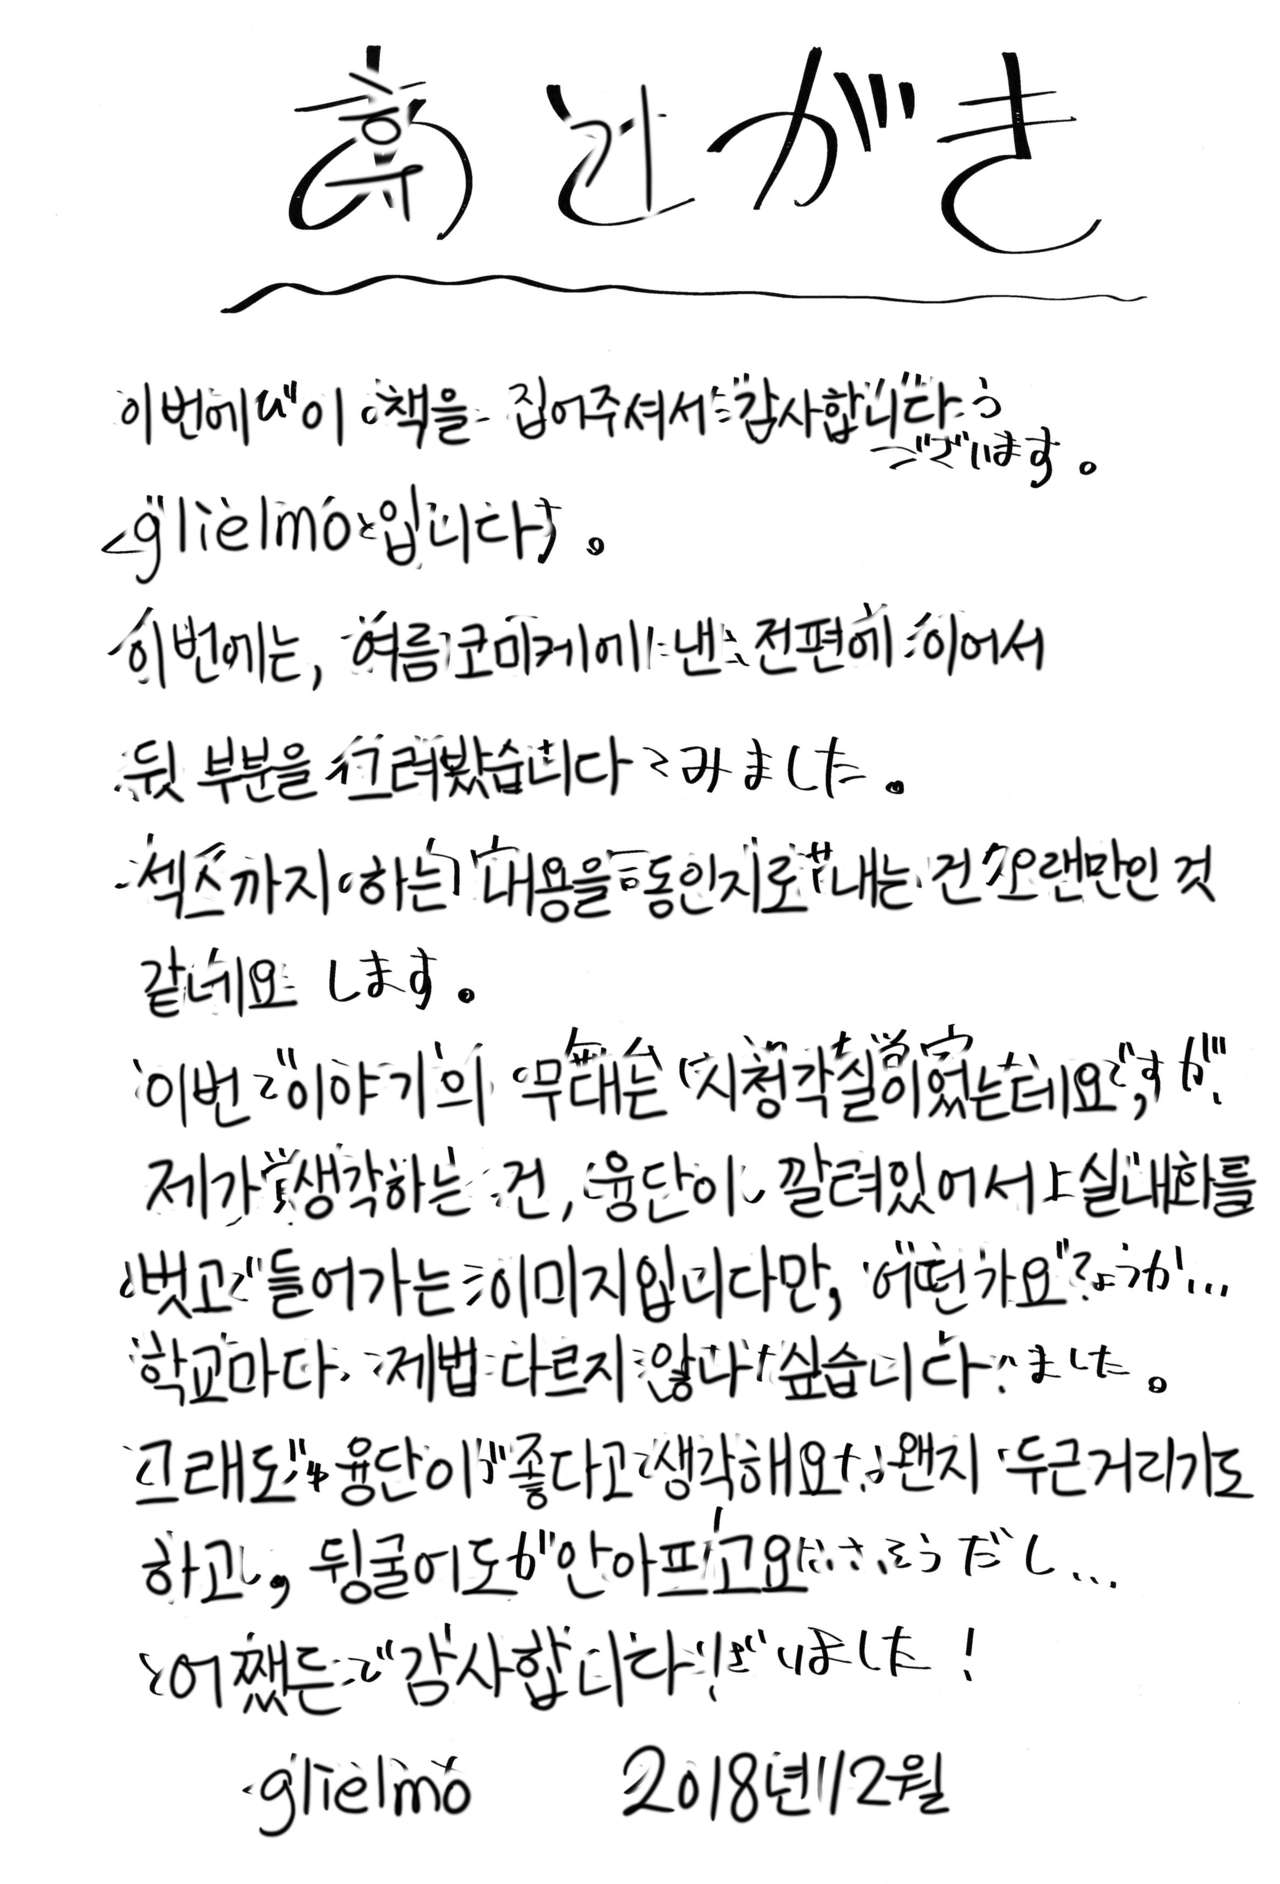 후기
がき
이번에 이 책을 집어주셔서 감사합니다
ございます。
glielmo입니다。
이번에는, 여름 코미케에 낸 전편에 이어서
뒷 부분을 그려봤습니다 てみました。
섹스까지 하는 내용을 동인지로 내는 건 오랜만인 것
같네요 します。
이번 이야기의 무대는 시청각실이었는데요, ですが
제가 생각하는 건, 융단이 깔려있어서 실내화를
벗고 들어가는 이미지입니다만, 어떤가요? ょうか...
학교마다 제법 다르지 않나 싶습니다 ました。
그래도 융단이 좋다고 생각해요 왠지 두근거리기도
하고, 뒹굴어도 안아프고요 そうだし...
어쨌든 감사합니다! ざいました!
glielmo 2018년12월